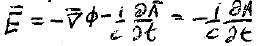 $\vec{E} = -\vec{\nabla}\phi - \frac{1}{c}\frac{\partial \vec{A}}{\partial t} = -\frac{1}{c}\frac{\partial A}{\partial t}$